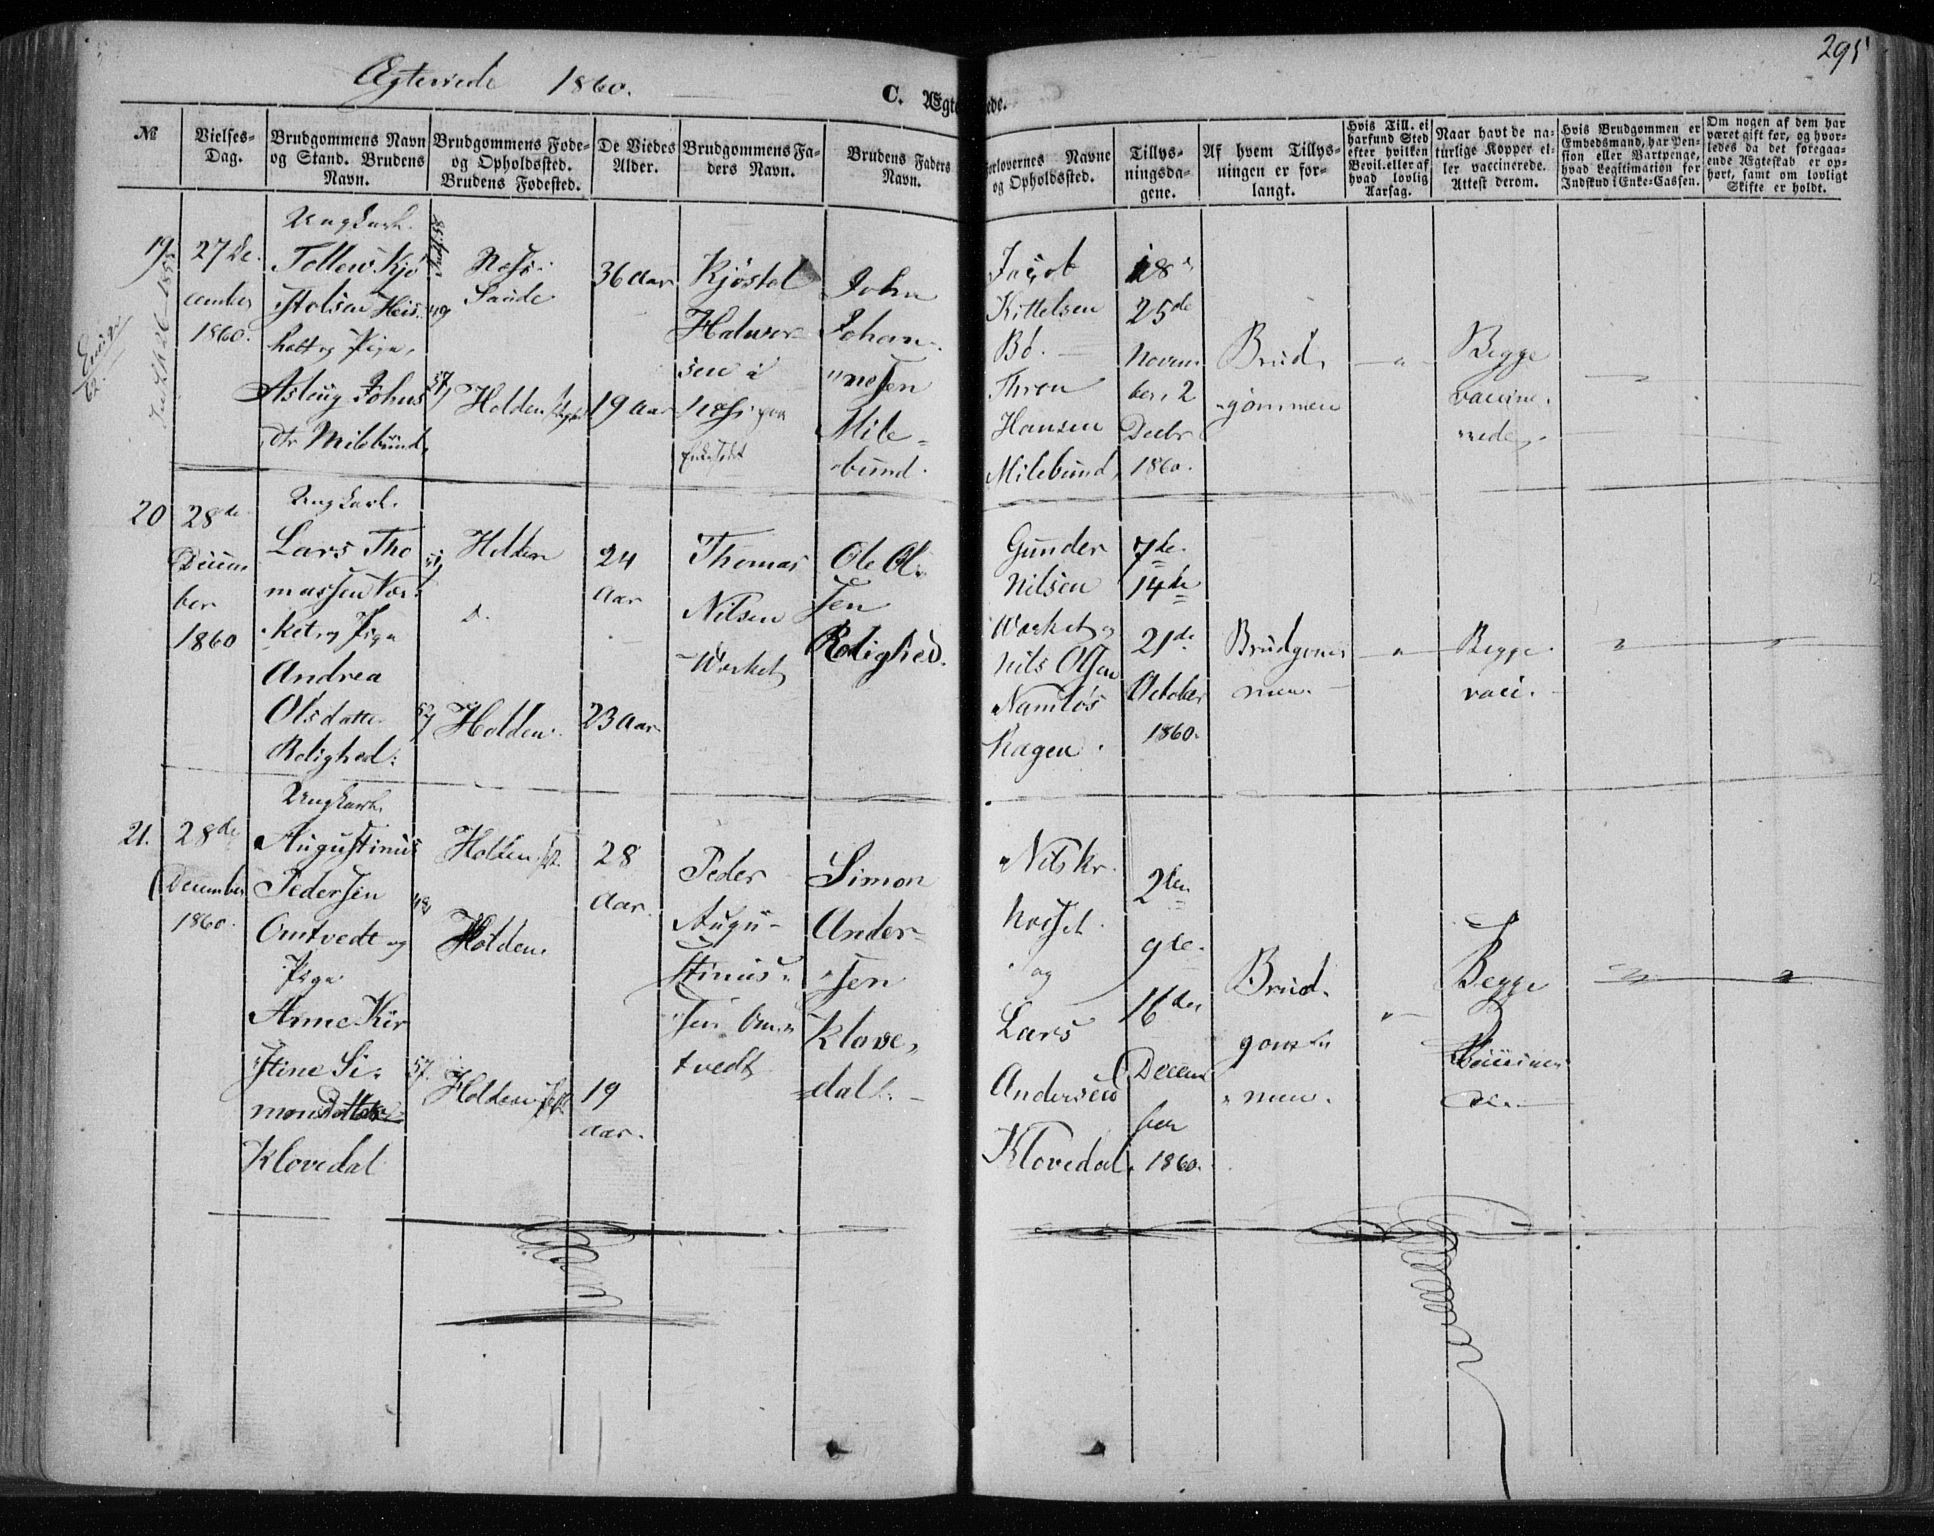 295
Ægteviede 1860.
C. Ægteviede.
No
Vielses-
Dag.
Brudgommens Navn
og Stand. Brudens
Navn.
Brudgommens Føde-
og Opholdssted.
Brudens Fødested.
De Viedes
Alder.
Brudgommens Fa-
ders Navn.
Brudens Faders
Navn.
Forlovernes Navne
og Opholdssted.
Tillys-
ningsda-
gene.
Af hvem Tillys-
ningen er for-
langt.
Hvis Till. ei
harfund Sted
efter hvilken
Bevil. eller af
hvad lovlig
Aarsag.
Naar havt de na-
turlige Kopper el-
ler vaccinerede.
Attest derom.
Hvis Brudgommen er
Embedsmand, har Pen-
sion eller Vartpenge,
hvad Legitimation for
Indskud i Enke-Cassen.
Om nogen af dem har
været gift før, og hvor-
ledes da det foregaa-
ende Ægteskab er op-
hørt, samt om lovligt
Skifte er holdt.
19
27de
cember
1860.
Ungkarl.
Tollew Kjø
stolsen Heis-
holt og Pige
Aslaug Johns
dtr Milebund.
49
57
Næs i
Saude
Holden
36 Aar
19 Aar
Kjøstol
Halvor-
sen i
John
Johan-
nesen
Mile-
bund.
Jacob
Kittelsen
Bö.
Thron
Hansen
Milebund,
18
25de
Novem
ber, 2
Decbr
1860.
Brud-
gommen
"
Begge
vaccine-
rede.
20
28de
Decem
ber
1860
Ungkarl.
Lars Tho
massen Vær-
ket og Pige
Andrea
Olsdatter
Rolighed.
52
Holden
Holden.
24
Aar
23 Aar
Thomas
Nilsen
Værket
Ole Ol-
sen
Rolighed.
Gunder
Nilsen
Værket og
Nils Olsen
Namløs
hagen.
7de
14de
21de
October
1860.
Brudgom-
men.
"
Begge
vacci.
"
"
21.
28de
December
1860.
Ungkarl.
Augustinus
Pedersen
Omtvedt og
Pige
Anne Kir
stine Si-
monsdatter
Klovedal
48
57.
Holden
Holden.
Holden
28
Aar.
19
Aar.
Peder
Augu-
stinus-
sen Om-
tvedt
Simon
Ander-
sen
Klove-
dal.
Nils Kr.
og
Lars
Andersen
Klovedal.
2den
9de
16den
Decem
ber
1860.
Brud-
gom-
men.
"
Begge